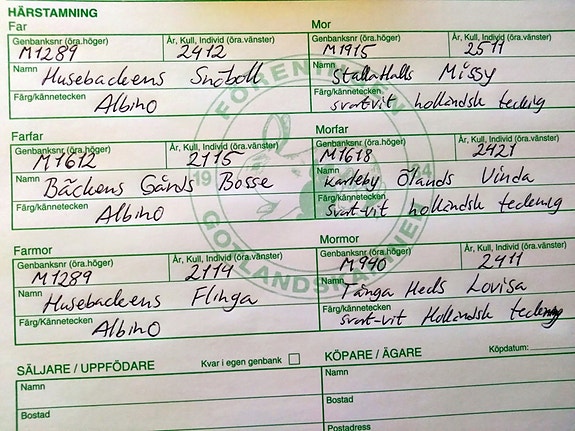 HÄRSTAMNING
Far
Mor
Genbanksnr (öra.höger) År, Kull, Individ (öra.vänster) Genbanksnr (öra.höger) År, Kull, Individ (öra.vänster)
M1289 2412 M1915 2511
Namn Husebackens Snöboll Namn Stallathalls Missy
Färg/kännetecken Albino Färg/kännetecken svartvit holländsk teckning
Farfar
Morfar
Genbanksnr (öra.höger) År, Kull, Individ (öra.vänster) Genbanksnr (öra.höger) År, Kull, Individ (öra.vänster)
M1612 2115 M1618 2421
Namn Bäckens Gårds Bosse Namn Karleby Ölands Vinda
Färg/Kännetecken Albino Färg/kännetecken svart-vit holländsk teckning
Farmor
Mormor
Genbanksnr (öra.höger) År, Kull, Individ (öra.vänster) Genbanksnr (öra.höger) År, Kull, Individ (öra.vänster)
M1289 2114 M940 2411
Namn Husebackens Flinga Namn Tånga Heds Lovisa
Färg/Kännetecken Albino Färg/Kännetecken svart-vit Holländsk teckning
SÄLJARE / UPPFÖDARE Kvar i egen genbank KÖPARE / ÄGARE Köpdatum:
Namn Namn
Bostad Bostad
Postadress
FÖRENINGEN
GOTLANDSKANINEN
19